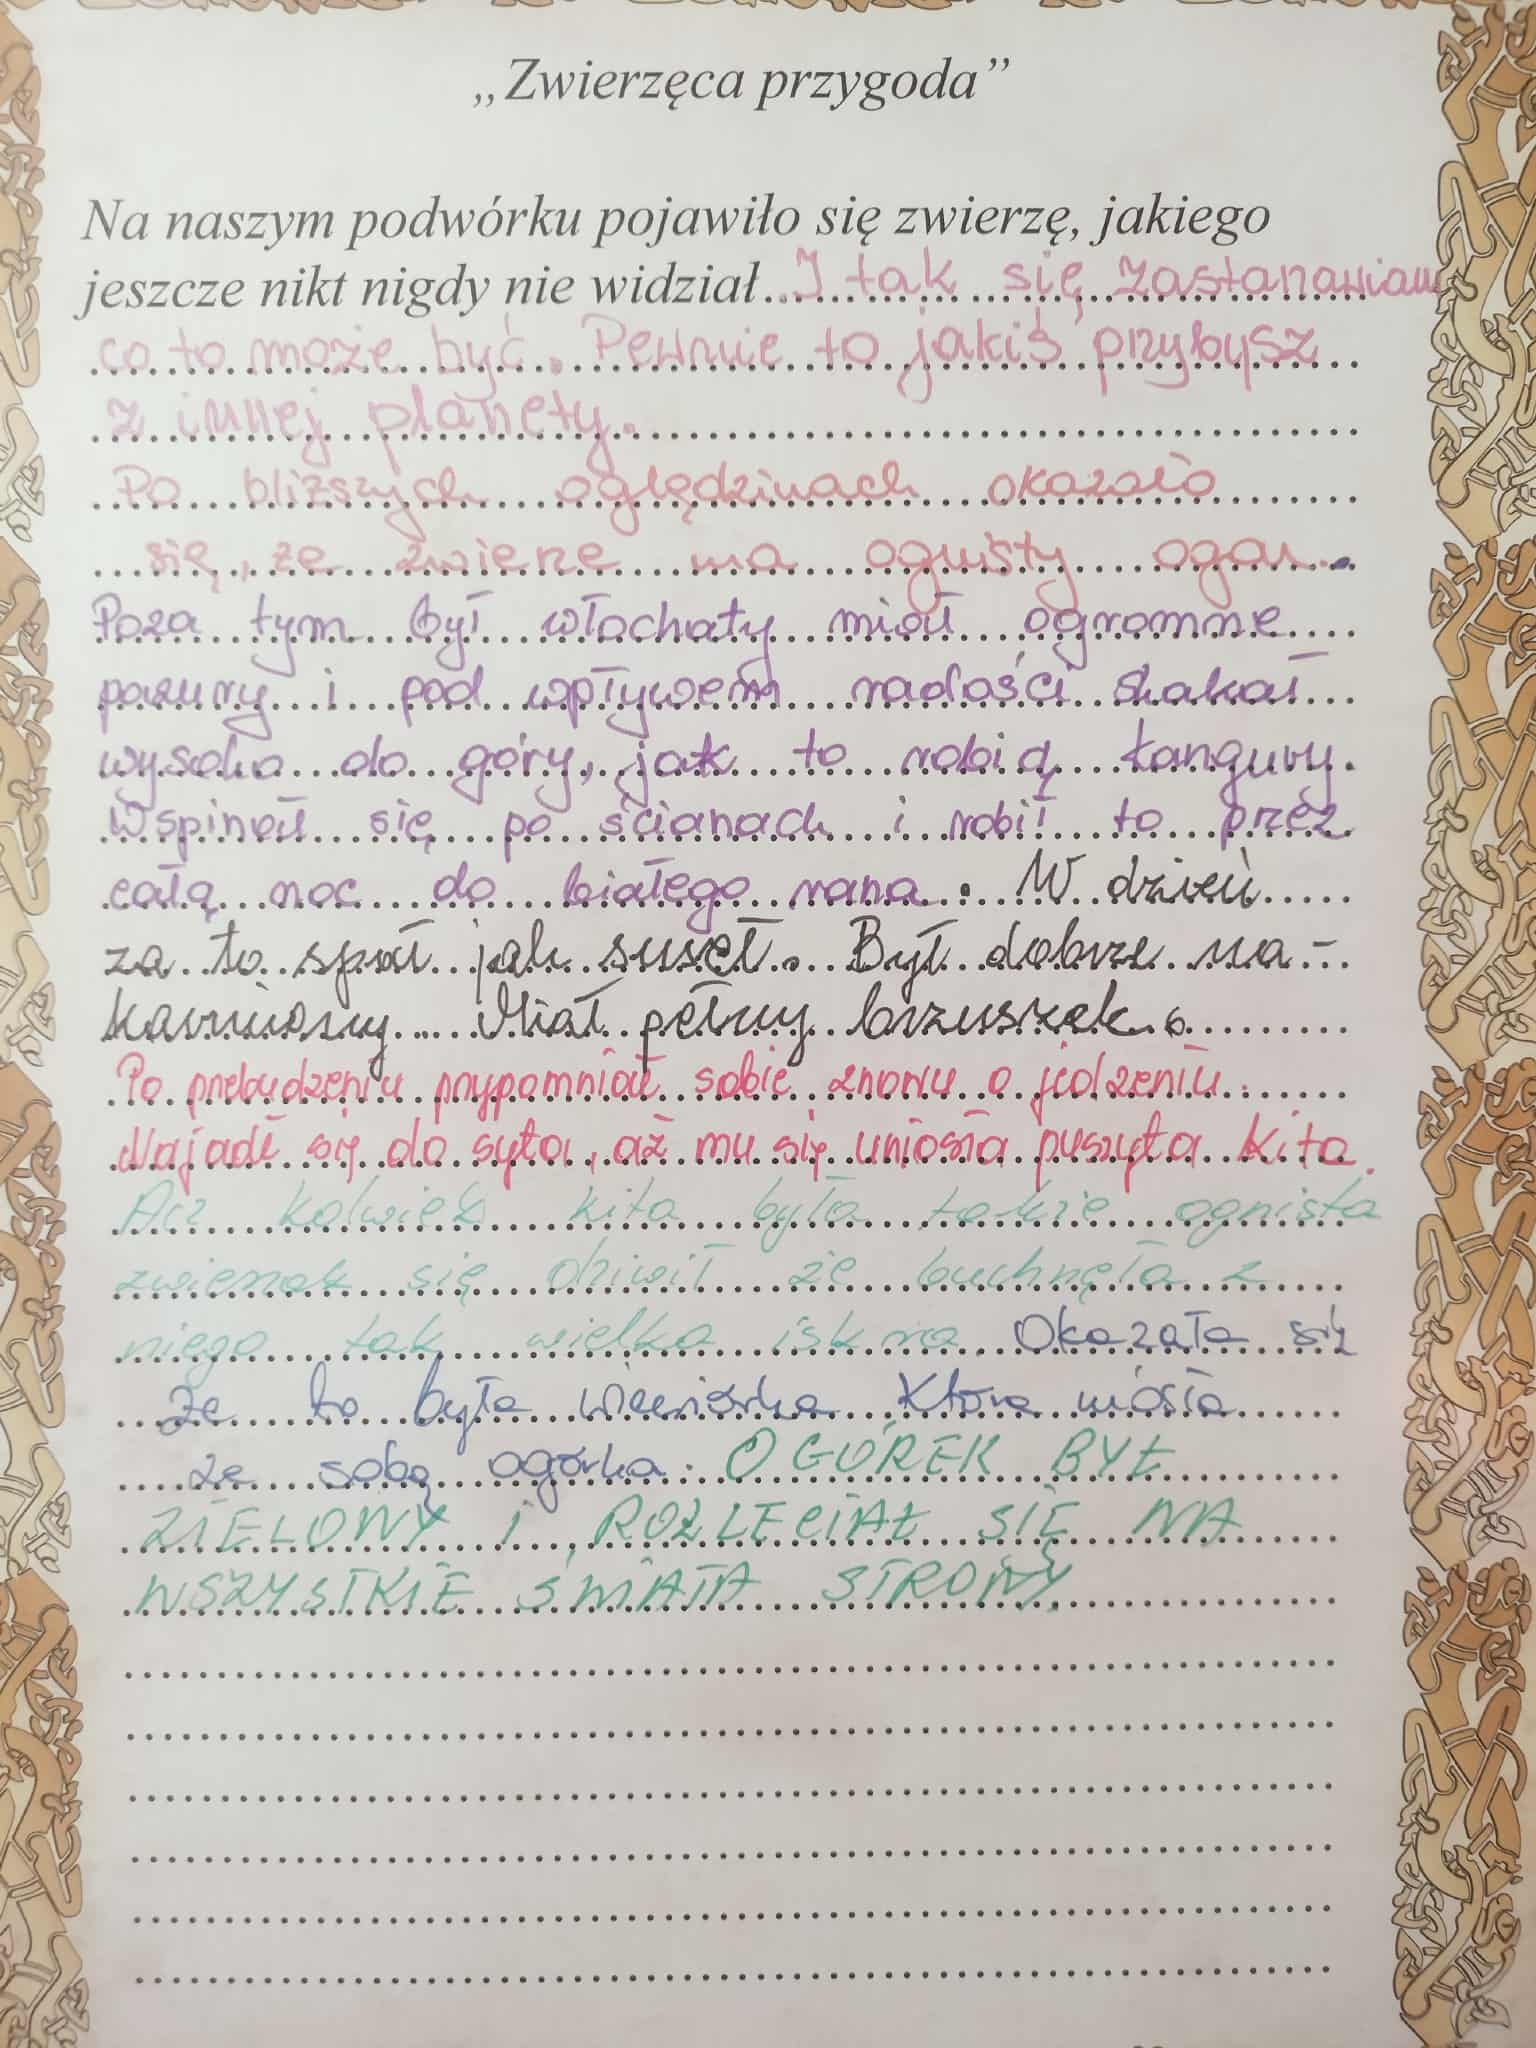 „Zwierzęca przygoda”
Na naszym podwórku pojawiło się zwierzę, jakiego
jeszcze nikt nigdy nie widział... I tak się zastanawiam
co to może być. Pewnie to jakiś przybysz
z innej planety.
Po bliższych oględzinach okazało
się, że zwierze ma ognisty ogon.
Poza tym był włochaty miał ogromne
pazury i pod wpływem radości skakał
wysoko do góry, jak to robią kangury.
Wspinał się po ścianach i robił to przez
całą noc do białego rana. W dzień
za to spał jak suseł. Był dobrze na-
karmiony. Miał pełny brzuszek.
Po przebudzeniu przypomniał sobie znowu o jedzeniu.
Najadł się do syta, aż mu się uniosła puszysta kita.
Acz kolwiek kita była także ognista
zwierzak się dziwił że buchnęła z
niego tak wielka iskra. Okazała się
że to była wiewiórka która niosła
ze sobą ogórka. OGÓREK BYŁ
ZIELONY I ROZLECIAŁ SIĘ NA
WSZYSTKIE ŚWIATA STRONY.